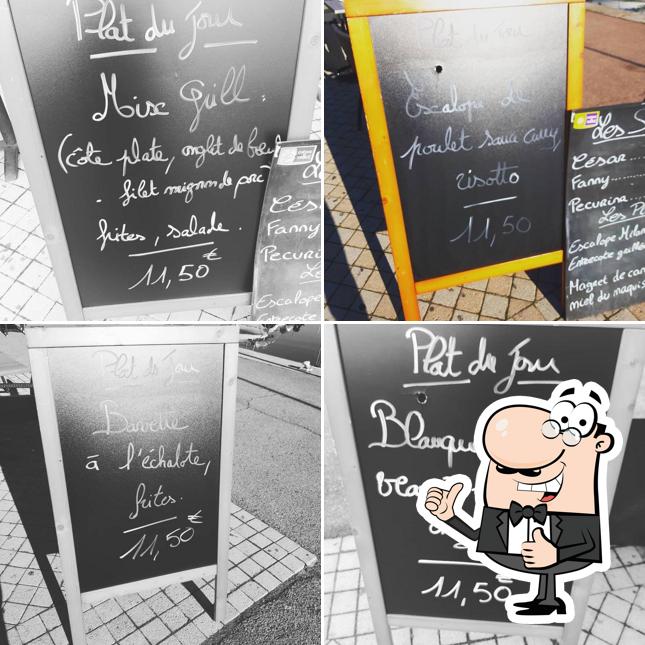 Plat du Jour
Mixe Grill :
(côte plate, onglet de bœuf
- filet mignon de porc
frites, salade.
11,50 €
César
Fanny
Pecuri
Escalope
Entrecote
Plat du Jour
Escalope de
poulet sauce curry
risotto
11,50
Les S
César
Fanny
Pecurina
Les
Escalope Milan
Entrecote grillé
Magret de can
miel du maquis
Plat du Jour
Bavette
à l'échalote,
frites.
11,50 €
Plat du Jour
Blanque
11,50